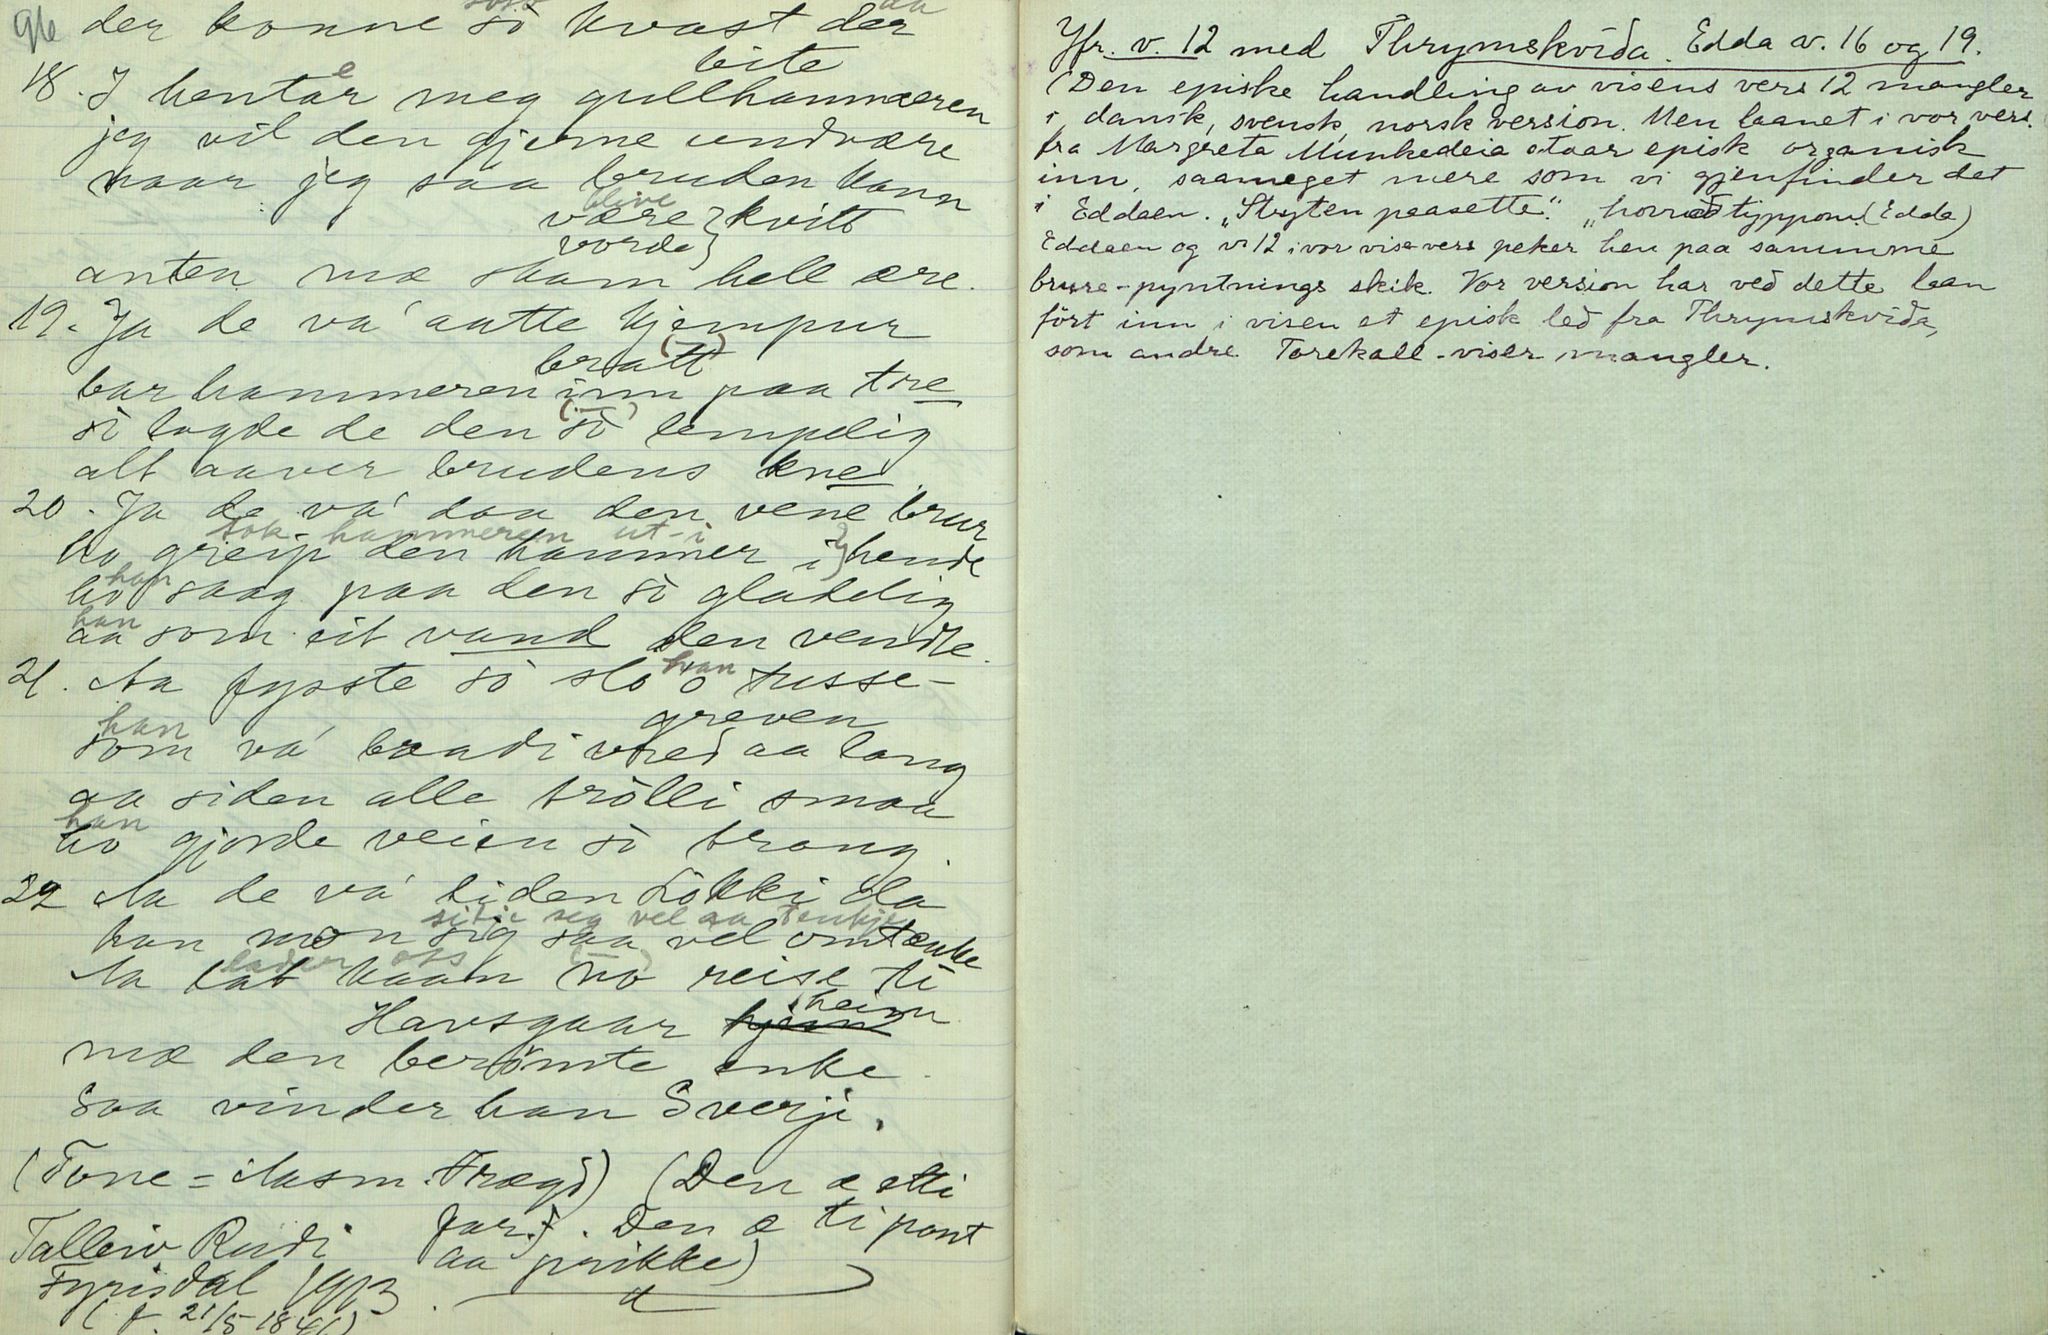 96 der konne sò kvast der
bite
18. I hentar meg gullhammeren
jeg vil den gjerne undvære
naar jeg saa bruden kann
blive
være } kvitt
vorde }
anten mæ skam hell ære.
19. Ja de va' aatte kjempur
bratt
bar hammeren inn paa tre
sò lagde de den sò lempelig
alt aaver brudens kne
20. Ja de va' daa den vene brur
tok hammeren ut-i
ho greip den hammer i } hende
han
ho saag paa den sò gladelig
han
aa som eit vand den vendte.
21. Aa fysste sò slo o tusse-
han
greven
han
som va' braadi vred aa lang
aa siden alle trölli smaa
han
ho gjorde veien sò trang.
22 Aa de va' liden Lòkki da
sitje seg vel aa tenkje
han mon sig saa vel omtenke
lader oss
Aa lat kaan no reise ti
Havsgaar heim
mæ den berömte enke.
Saa vinder han Sverji.
(Tone = Aasm. Frægd) (Den æ etti
far. Den æ ti pont
Talleiv Rudi aa prikke)
Fyrisdal 1913
(f. 21/5-1841)
Jfr. v. 12 med Thrymskvida. Edda v. 16 og 19.
(Den episke handling av visens vers 12 mangler
i dansk, svensk, norsk version. Men laanet i vor vers.
fra Margreta Munkedeia staar episk organisk
inn, saameget mere som vi gjenfinder det
i Eddaen. "Stryten paasette". "hovud typpom" (Edda)
Eddaen og v. 12 i vor vise vers peker hen paa samme
brure-pyntnings skik. Vor version har ved dette laan
fört inn i visen et episk led fra Thrymskvida,
som andre Torekall-viser mangler.